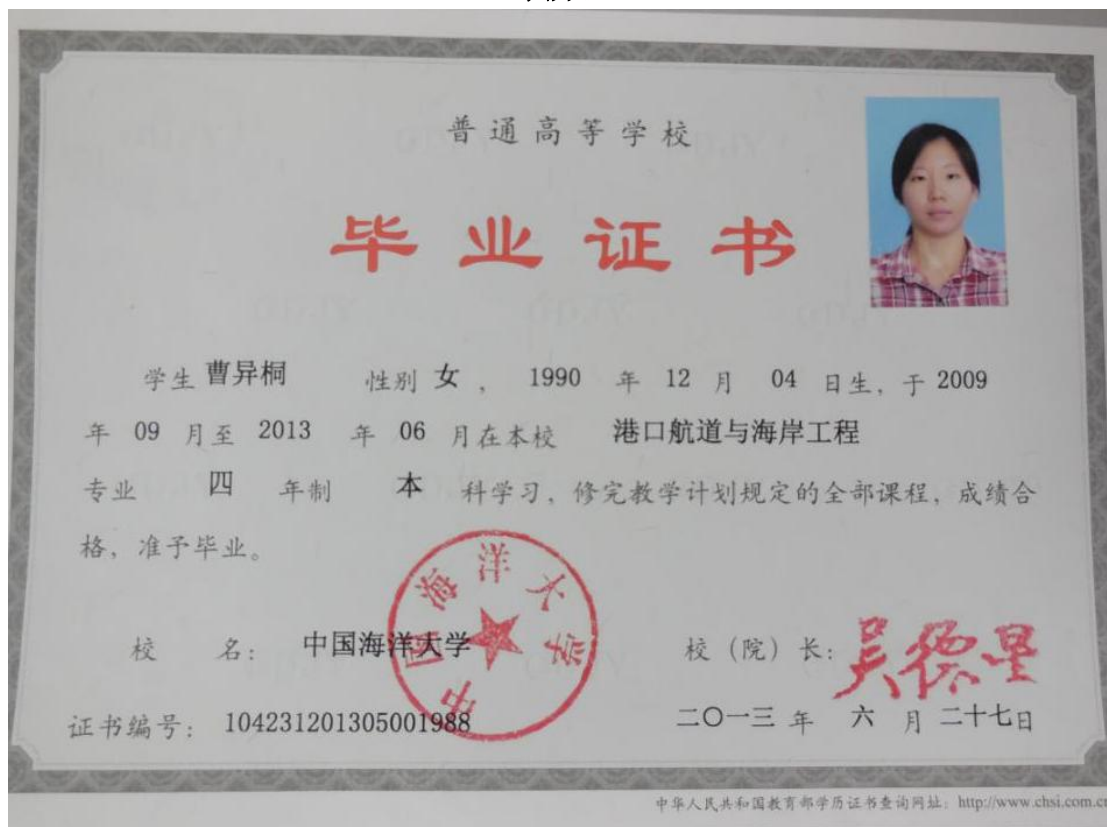 普通高等学校
毕业证书
学生 曹异桐 性别 女 , 1990 年 12 月 04 日生, 于 2009
年 09 月至 2013 年 06 月在本校 港口航道与海岸工程
专业 四 年制 本 科学习, 修完教学计划规定的全部课程, 成绩合
格, 准予毕业。
中国海洋大学
校 名: 中国海洋大学 校(院)长: 吴德星
证书编号: 104231201305001988 二〇一三 年 六 月 二十七日
中华人民共和国教育部学历证书查询网址: http://www.chsi.com.cn